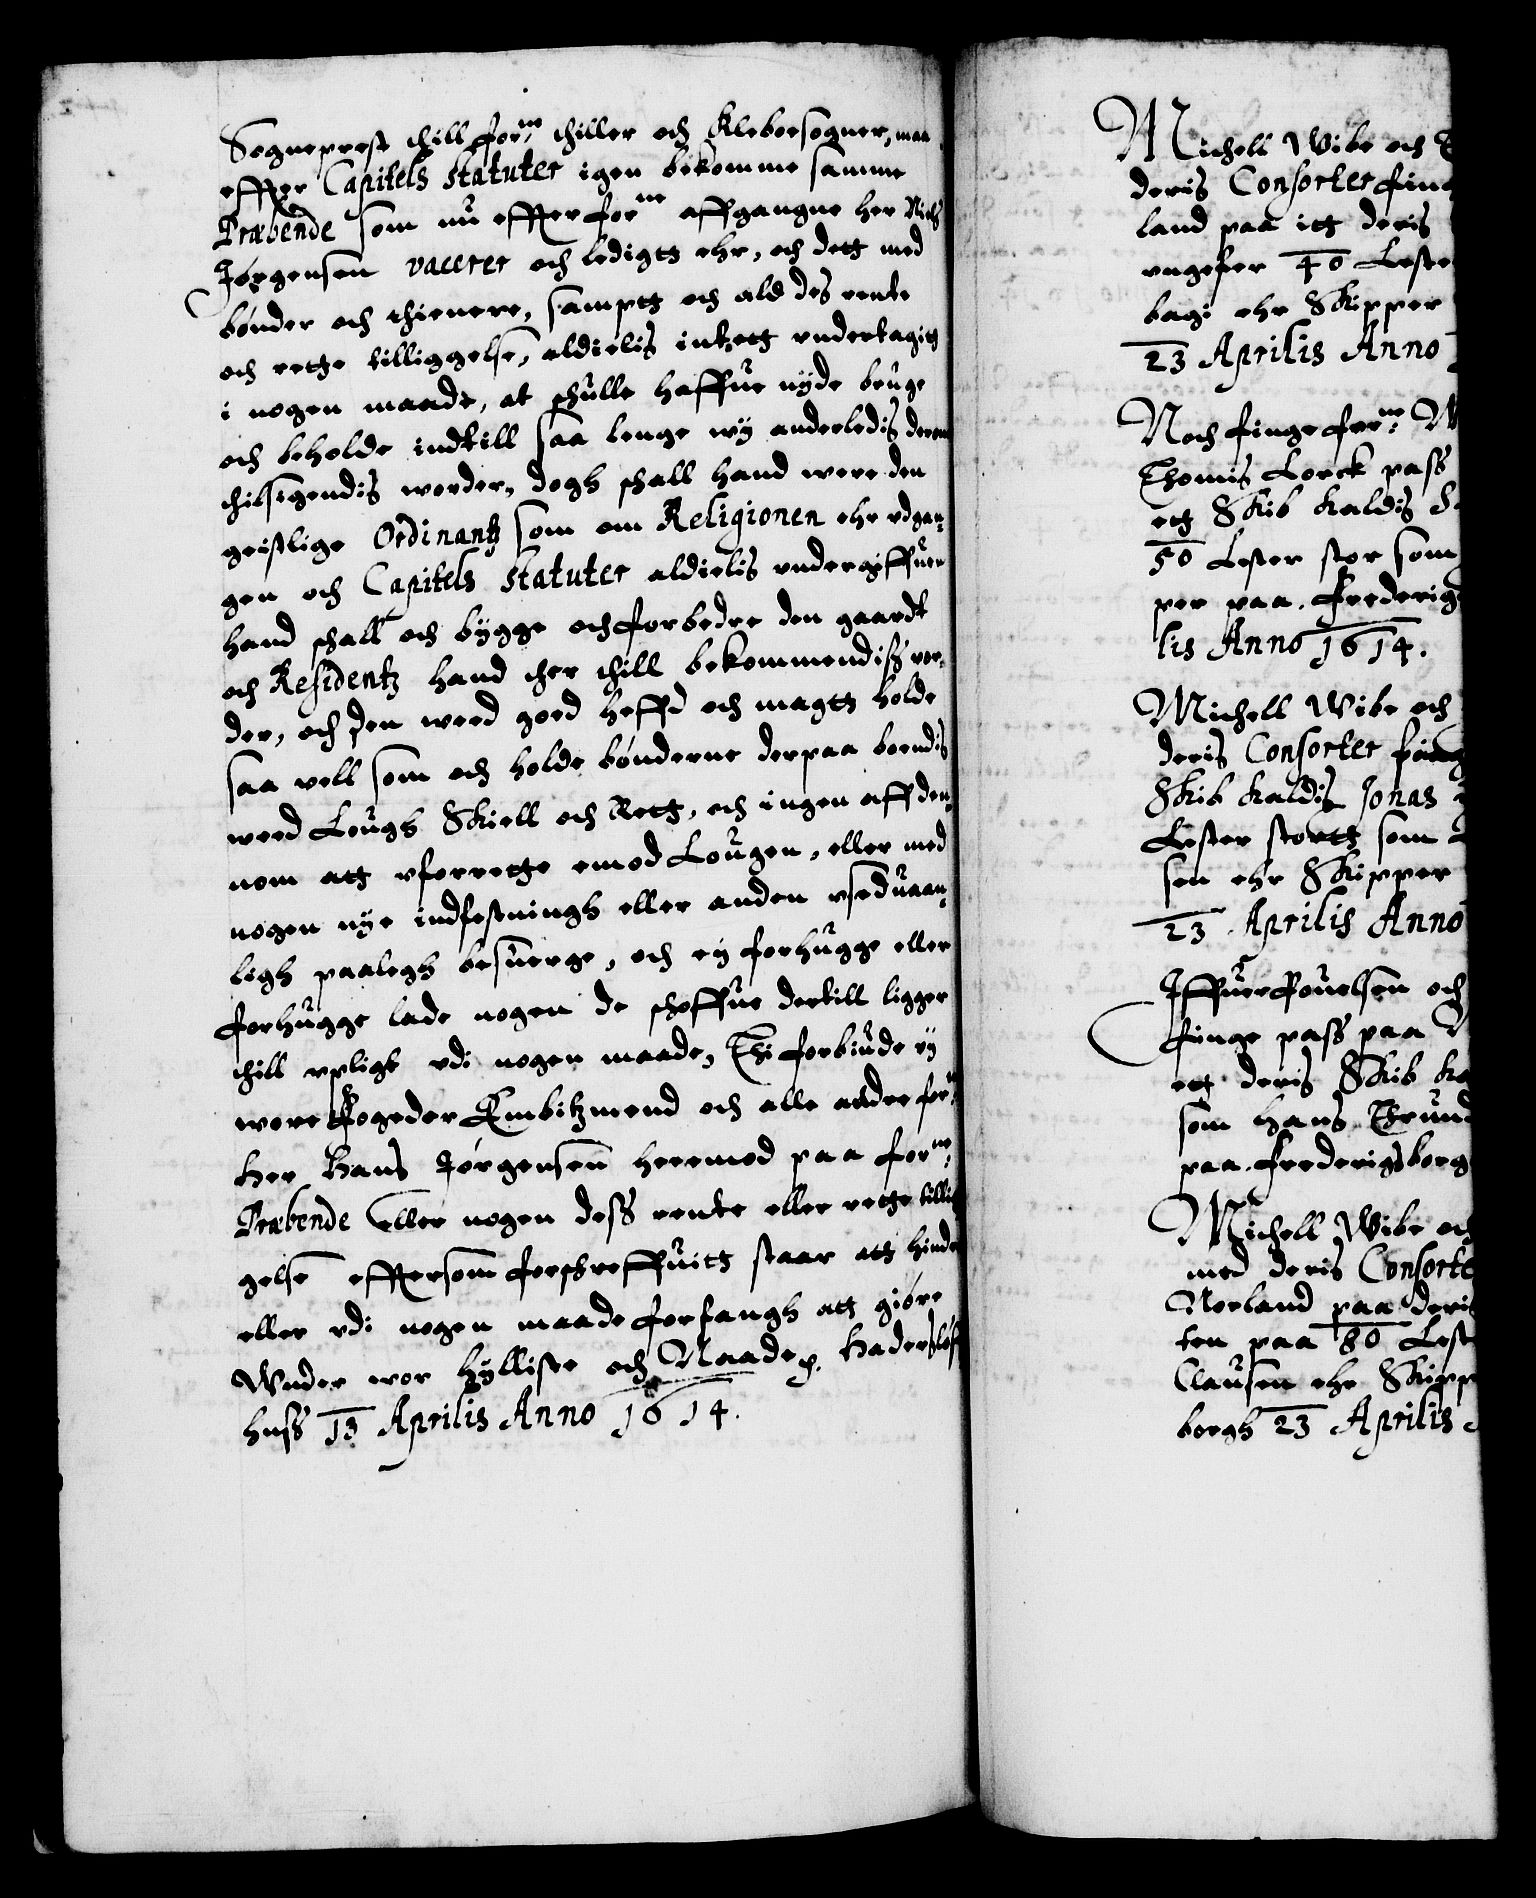 Sogneprest thill forne: thiller och Kleboesogner, maa
effter Capitels Statuter igen bekomme samme
Præbende som nu effter forne affgangne her Niels
Jørgensen vacerer och ledigtt ehr, och dett med
bønder och thienere, samptt och ald des rente
och rette tilliggelse, aldielis inthett undertagitt
i nogen maade, at schulle haffue nyde bruge
och beholde indtill saa lenge wy anderledis derom
thilsigendis worder, dogh schall hand were den
geistlige Ordinantz som om Religionen ehr udgan-
gen och Capitels Statuter aldielis undergiffuen
hand schall och bygge och forbedre den gaardt
och Residentz hand ther thill bekommendiss wor-
der, och den weed goed heffd och magtt holde
saa vell som och holde bønderne derpaa boendis
weed Lougs Skiell och Rett, och ingen aff den-
nom att uforrette emod Lougen, eller med
nogen nye indfestningh eller anden usedvaan-
ligh paalegh besuerge, och ey forhugge eller
forhugge lade nogen de schoffue dertill ligger
thill upligt udi nogen maade, Thi forbiude wy
wore fogeder Embitzmend och alle andre forne:
Her Hans Jørgensen heremod paa forne:
Præbende eller nogen dess rente eller rette tillig
gelse efftersom forschreffuitt staar att hindre
eller udi nogen maade forfangh att giøre
Wnder wor hylliste och Naade p. Haderslöff
huss 13 Aprilis Anno 1614.
Michell Wibe och
deris Consorter fing
land paa itt deris
ungefer 40 Lester
bag: ehr Skipper
23 Aprilis Anno
Noch finge forne: W
Thomis Lorck pass
ett Skib kaldis S.
50 Lester stor som
per paa. Frederigs
lis Anno 1614.
Michell Wibe och
deris Consorter fing
Skib kaldis Jonas
Lester stortt som
sen ehr Skipper
23 Aprilis Anno
Iffuer Pouelsen och
finge pass paa
ett deris Skib ka
som Hans Trund
paa. Frederigsborg
Michell Wibe och
med deris Consorte
Norland paa deris
ten paa 80 Lest
Clausen ehr Skipp
borgh 23 Aprilis